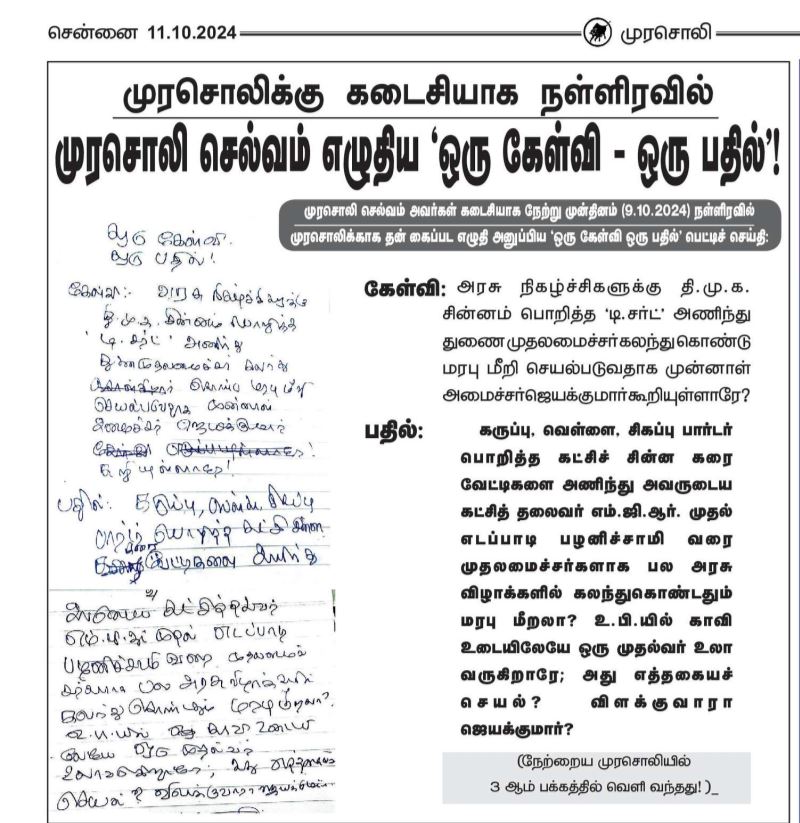 சென்னை 11.10.2024
முரசொலி
முரசொலிக்கு கடைசியாக நள்ளிரவில்
முரசொலி செல்வம் எழுதிய ‘ஒரு கேள்வி - ஒரு பதில்’!
முரசொலி செல்வம் அவர்கள் கடைசியாக நேற்று முன்தினம் (9.10.2024) நள்ளிரவில்
முரசொலிக்காக தன் கைப்பட எழுதி அனுப்பிய ‘ஒரு கேள்வி ஒரு பதில்’ பெட்டிச் செய்தி:
ஒரு கேள்வி.
ஒரு பதில்!
கேள்வி:- அரசு நிகழ்ச்சிகளுக்கு
தி.மு.க. சின்னம் பொறித்த
‘டி. சர்ட்’ அணிந்து
துணைமுதலமைச்சர் கலந்து
கொண்டு மரபு மீறி
செயல்படுவதாக முன்னாள்
அமைச்சர் ஜெயக்குமார்
கூறியுள்ளாரே!
பதில்: கருப்பு, வெள்ளை, சிகப்பு
பார்டர் பொறித்த கட்சி சின்ன
கரை வேட்டிகளை அணிந்து
2)
அவருடைய கட்சித்தலைவர்
எம்.ஜி.ஆர். முதல் எடப்பாடி
பழனிச்சாமி வரை முதலமைச்
சர்களாக பல அரசு விழாக்களில்
கலந்து கொண்டதும் மரபு மீறலா?
உ.பி.யில் காவி உடை
யிலேயே ஒரு முதல்வர்
உலாவருகிறாரே; அது எத்தகைய
செயல்? விளக்குவாரா ஜெயக்குமார்
கேள்வி: அரசு நிகழ்ச்சிகளுக்கு தி.மு.க.
சின்னம் பொறித்த ‘டி.சர்ட்’ அணிந்து
துணைமுதலமைச்சர்கலந்துகொண்டு
மரபு மீறி செயல்படுவதாக முன்னாள்
அமைச்சர்ஜெயக்குமார்கூறியுள்ளாரே?
பதில்: கருப்பு, வெள்ளை, சிகப்பு பார்டர்
பொறித்த கட்சிச் சின்ன கரை
வேட்டிகளை அணிந்து அவருடைய
கட்சித் தலைவர் எம்.ஜி.ஆர். முதல்
எடப்பாடி பழனிச்சாமி வரை
முதலமைச்சர்களாக பல அரசு
விழாக்களில் கலந்துகொண்டதும்
மரபு மீறலா? உ.பி.யில் காவி
உடையிலேயே ஒரு முதல்வர் உலா
வருகிறாரே; அது எத்தகையச்
செயல்? விளக்குவாரா
ஜெயக்குமார்?
(நேற்றைய முரசொலியில்
3 ஆம் பக்கத்தில் வெளி வந்தது! )_